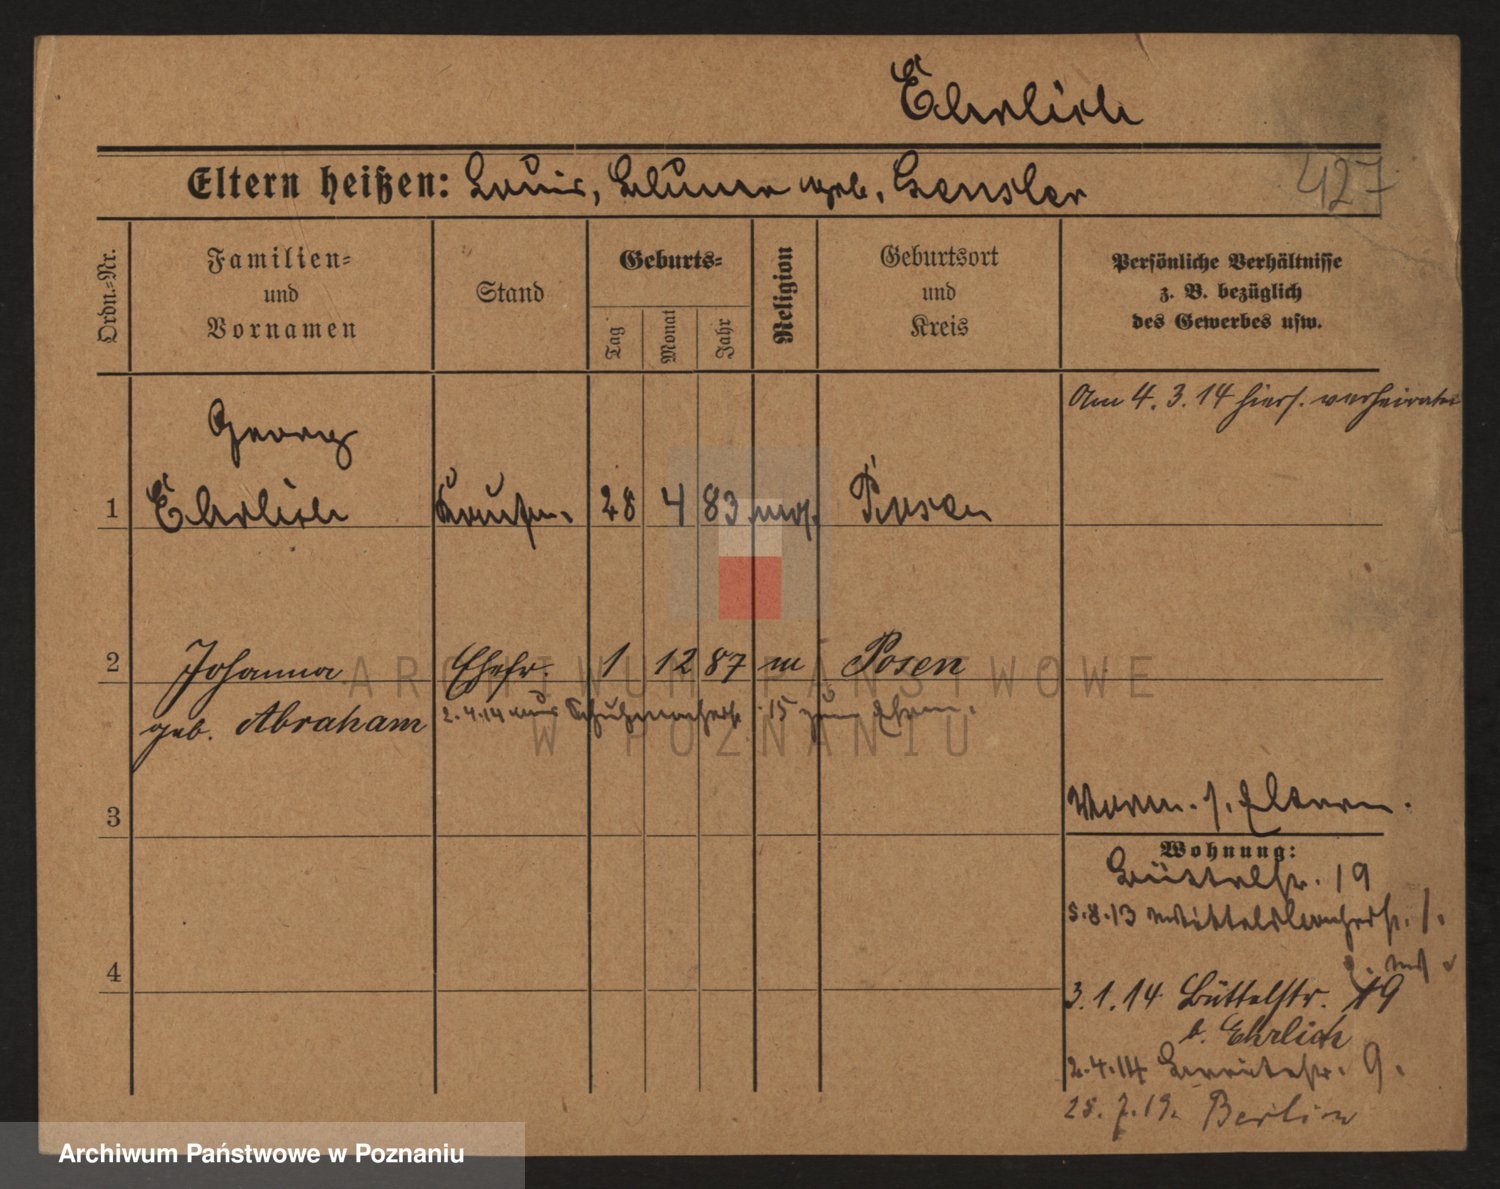 Ehrlich
427
Eltern heißen: Louis, Bluma geb. Gensler
Ordn.-Nr.
Familien-
und
Vornamen
Stand
Geburts-
Tag
Monat
Jahr
Religion
Geburtsort
und
Kreis
Persönliche Verhältnisse
z. B. bezüglich
des Gewerbes usw.
Am 4. 3. 14 hiers. verheiratet
Georg
1 Ehrlich Kaufm. 28 4 83 mos. Posen
2 Johanna Ehefr. 1 12 87 m Posen
geb. Abraham
2.4.14 aus 15 zum Ehem.
3
Worm. s. Eltern.
Wohnung:
Büttelstr. 19
5.8.13
4
3.1.14 Büttelstr. 19
b. Ehrlich
2.4.14 9.
28. 7. 19. Berlin
ARCHIWUM PAŃSTWOWE
W POZNANIU
Archiwum Państwowe w Poznaniu